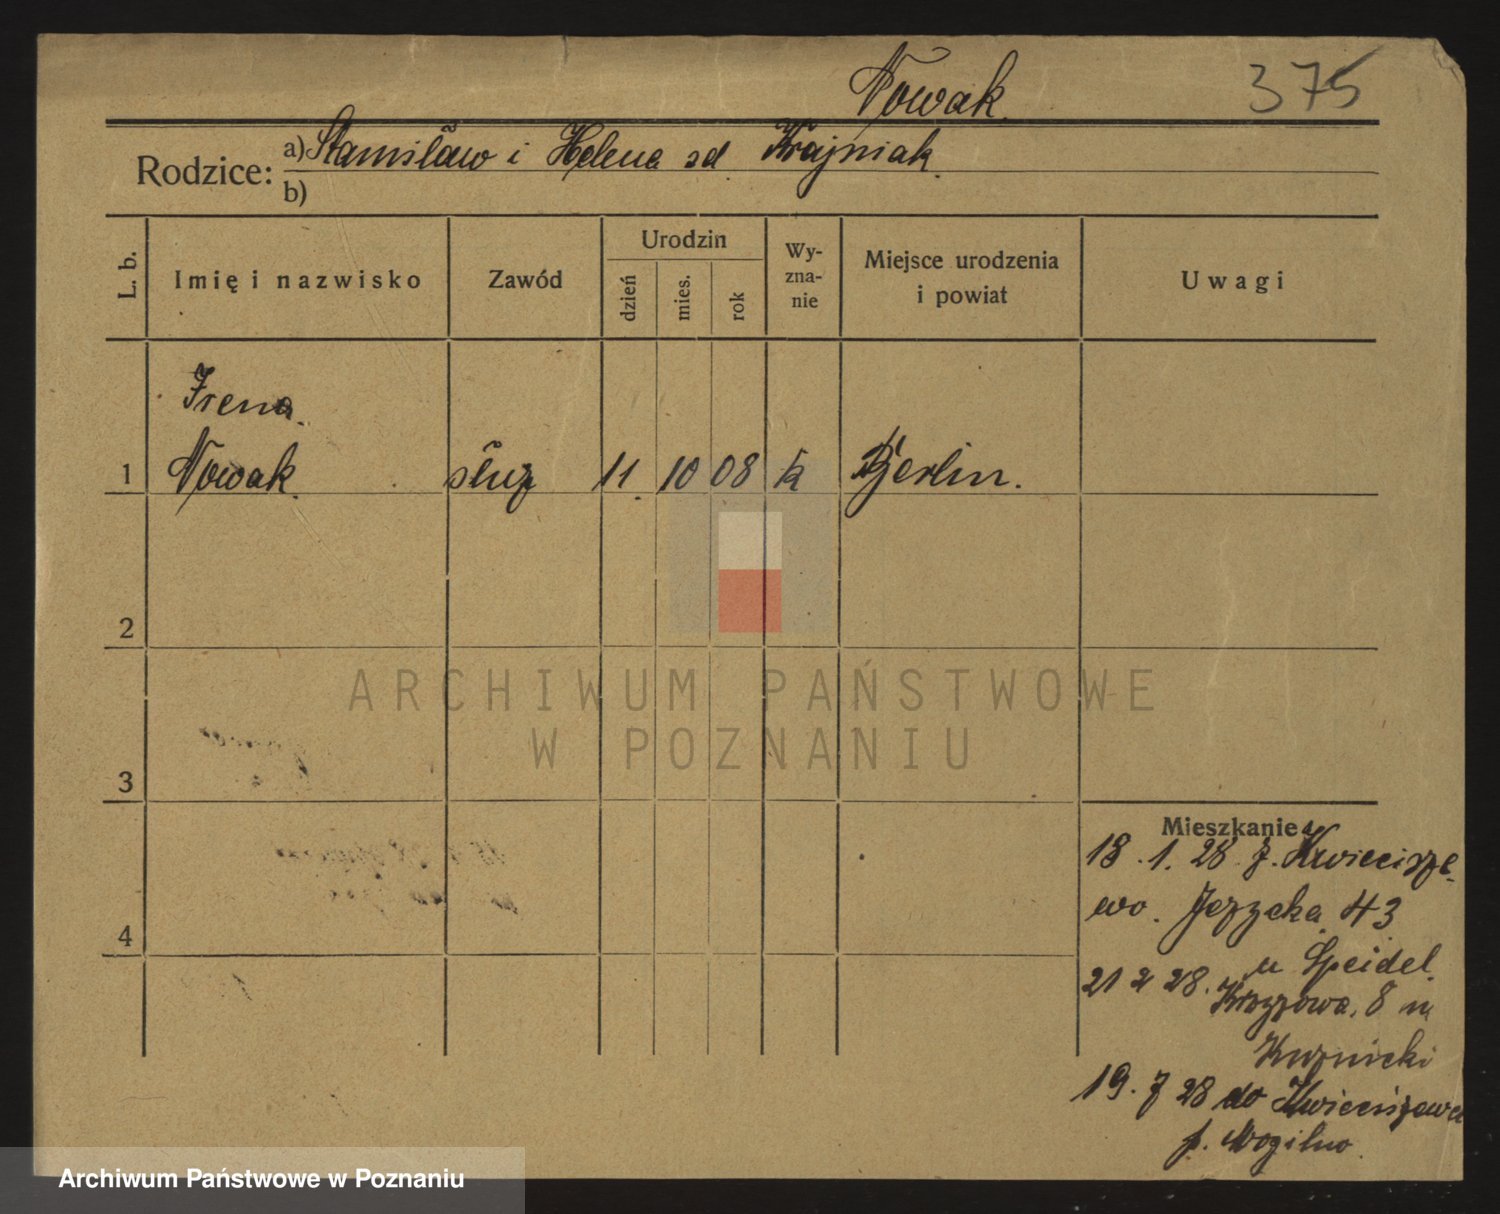 Nowak. 375
Rodzice: a) Stanisław i Helena sd. Krajniak.
b)
L. b. Imię i nazwisko Zawód Urodzin dzień mies. rok Wyznanie Miejsce urodzenia i powiat Uwagi
Irena
1 Nowak służ 11. 10 08 k Berlin.
2
ARCHIWUM PAŃSTWOWE
W POZNANIU
3
Mieszkanie
18. 1. 28 z. Kwieciszewo
wo. 43
4
u Speidel.
21 2 28. 8 u
Kuznicki
19. 7 28 do Kwieciszewa
p. Mogilno.
Archiwum Państwowe w Poznaniu